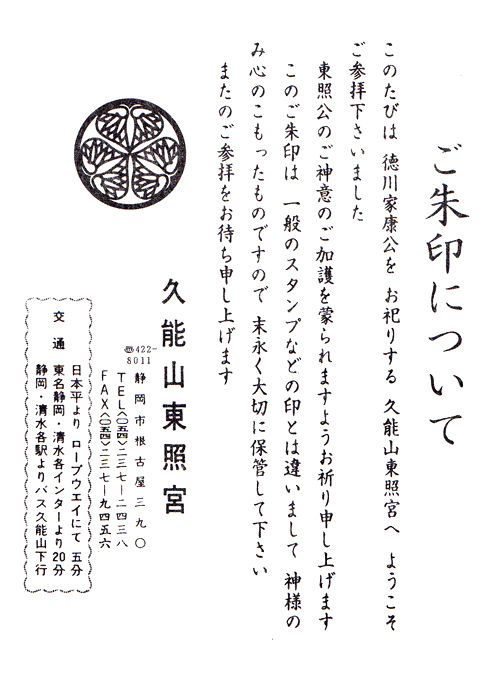 ご朱印について
このたびは 徳川家康公を お祀りする 久能山東照宮へ ようこそ
ご参拝下さいました
東照公のご神意のご加護を蒙られますようお祈り申し上げます
このご朱印は 一般のスタンプなどの印とは違いまして 神様の
み心のこもったものですので 末永く大切に保管して下さい
またのご参拝をお待ち申し上げます
久能山東照宮
〠422-8011
静岡市根古屋三九〇
TEL〈〇五四〉二三七ー二四三八
FAX〈〇五四〉二三七ー九四五六
交通
日本平より ロープウエイにて 五分
東名静岡・清水各インターより20分
静岡・清水各駅よりバス久能山下行